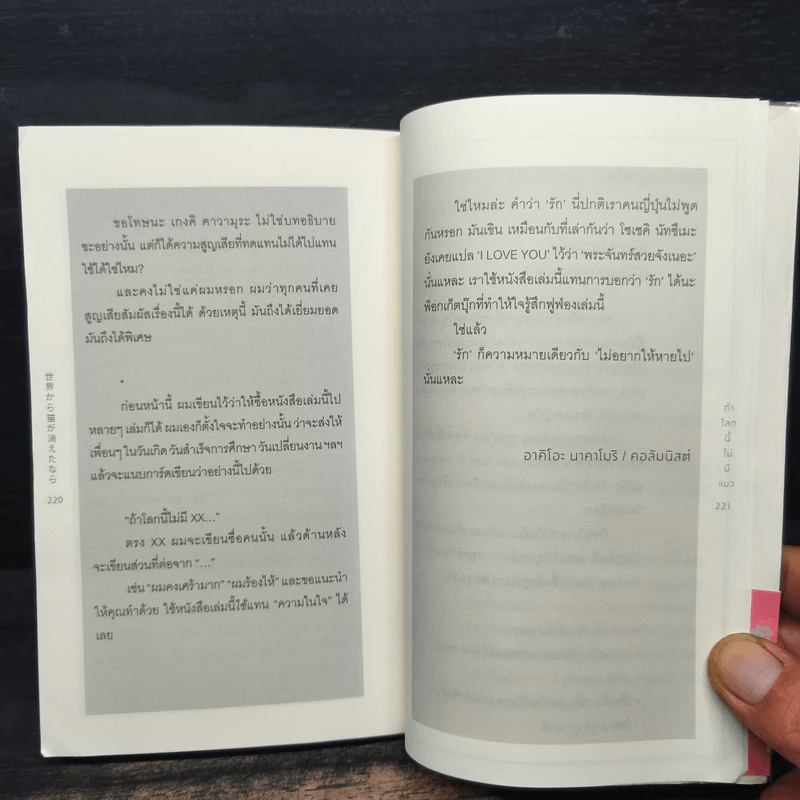 ขอโทษนะ เกงคิ คาวามุระ ไม่ใช่บทอธิบาย
ซะอย่างนั้น แต่ก็ได้ความสูญเสียที่ทดแทนไม่ได้ไปแทน
ใช้ได้ใช่ไหม?
และคงไม่ใช่แค่ผมหรอก ผมว่าทุกคนที่เคย
สูญเสียสัมผัสเรื่องนี้ได้ ด้วยเหตุนี้ มันถึงได้เยี่ยมยอด
มันถึงได้พิเศษ
•
ก่อนหน้านี้ ผมเขียนไว้ว่าให้ซื้อหนังสือเล่มนี้ไป
หลายๆ เล่มก็ได้ ผมเองก็ตั้งใจจะทำอย่างนั้น ว่าจะส่งให้
เพื่อนๆ ในวันเกิด วันสำเร็จการศึกษา วันเปลี่ยนงาน ฯลฯ
แล้วจะแนบการ์ดเขียนว่าอย่างนี้ไปด้วย
“ถ้าโลกนี้ไม่มี XX...”
ตรง XX ผมจะเขียนชื่อคนนั้น แล้วด้านหลัง
จะเขียนส่วนที่ต่อจาก “...”
เช่น “ผมคงเศร้ามาก” “ผมร้องไห้” และขอแนะนำ
ให้คุณทำด้วย ใช้หนังสือเล่มนี้ใช้แทน “ความในใจ” ได้
เลย
世界から猫が消えたなら
220
ใช่ไหมล่ะ คำว่า ‘รัก’ นี่ปกติเราคนญี่ปุ่นไม่พูด
กันหรอก มันเขิน เหมือนกับที่เล่ากันว่า โซเซคิ นัทซึเมะ
ยังเคยแปล ‘I LOVE YOU’ ไว้ว่า ‘พระจันทร์สวยจังเนอะ’
นั่นแหละ เราใช้หนังสือเล่มนี้แทนการบอกว่า ‘รัก’ ได้นะ
พ็อกเก็ตบุ๊กที่ทำให้ใจรู้สึกฟูฟ่องเล่มนี้
ใช่แล้ว
‘รัก’ ก็ความหมายเดียวกับ ‘ไม่อยากให้หายไป’
นั่นแหละ
อาคิโอะ นาคาโมริ / คอลัมนิสต์
ถ้า
โลก
นี้
ไม่
มี
แมว
221